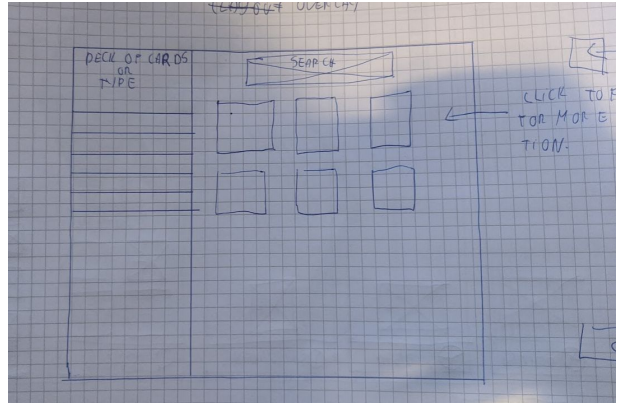 OVERLAY
DECK OF CARDS
OR
TYPE
SEARCH
CLICK TO
FOR MORE
TION.